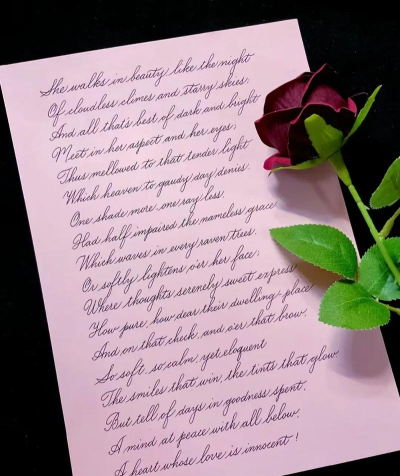 She walks in beauty like the night
Of cloudless climes and starry skies,
And all that's best of dark and bright
Meet in her aspect and her eyes;
Thus mellowed to that tender light
Which heaven to gaudy day denies.
One shade more, one ray less,
Had half impaired the nameless grace
Which waves in every raven tress,
Or softly lightens o'er her face;
Where thoughts serenely sweet express
How pure, how dear their dwelling-place
And on that cheek, and o'er that brow,
So soft, so calm, yet eloquent
The smiles that win, the tints that glow
But tell of days in goodness spent,
A mind at peace with all below,
A heart whose love is innocent!